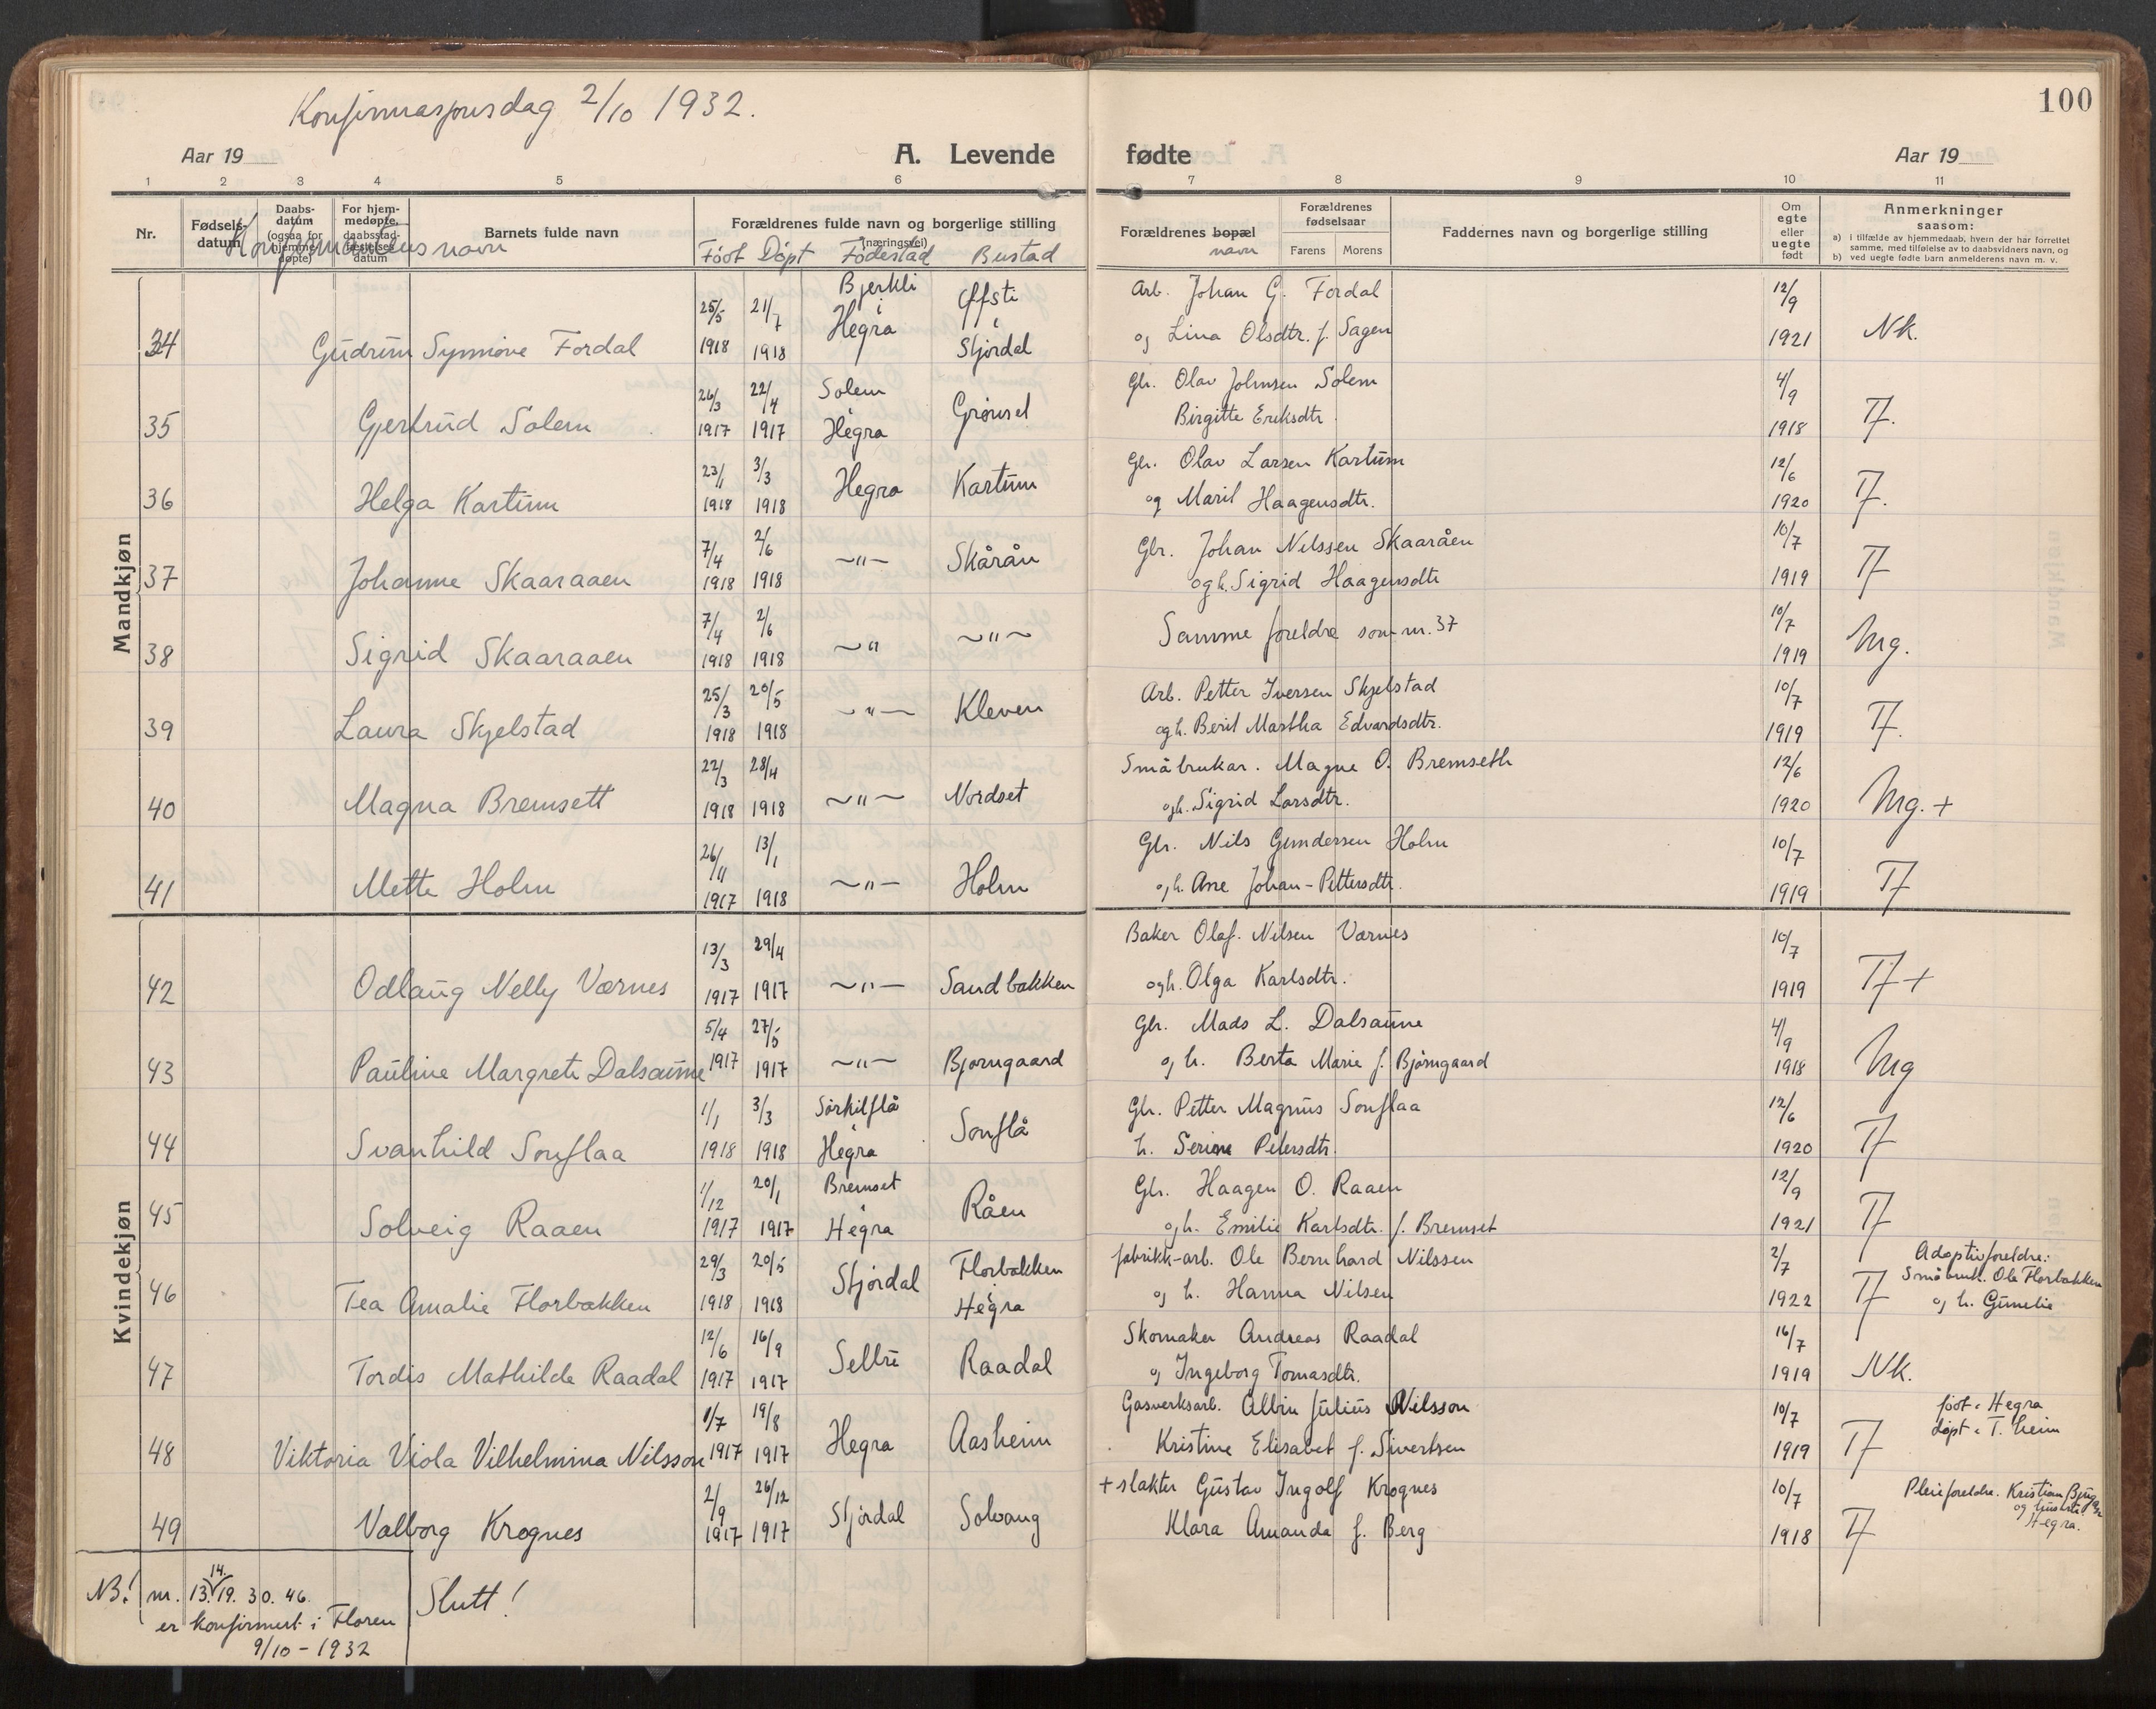 Konfirmasjonsdag 2/10 1932.
100
Aar 19
A. Levende
fødte
Aar 19
1 2 3 4 5 6 7 8 9 10 11
Nr.
Fødsels-
datum
Daabs-
datum
(ogsaa for
hjemme-
døpte)
For hjem-
medøpte,
daabsstad-
fæstelses
datum
Konfirmantens navn
Barnets fulde navn
Forældrenes fulde navn og borgerlige stilling
(næringsvei)
Født Døpt Fødestad Bustad
Forældrenes bopæl
navn
Forældrenes
fødselsaar
Farens Morens
Faddernes navn og borgerlige stilling
Om
egte
eller
uegte
født
Anmerkninger
saasom:
a) i tilfælde av hjemmedaab, hvem der har forrettet
samme, med tilføielse av to daabsvidners navn, og
b) ved uegte fødte barn anmelderens navn m. v.
Mandkjøn
34 Gudrun Synnøve Fordal 25/5 1918 21/7 1918 Bjerkli i Hegra Øfsti i Stjørdal
Arb. Johan G. Fordal
og Lina Olsdtr. f. Sagen
12/9 1921 Nk.
35 Gjertrud Solem 26/3 1917 22/4 1917 Solem i Hegra Grønset
Gbr. Olav Johnsen Solem
Birgitte Eriksdtr.
4/9 1918 Tf.
36 Helga Kartum 23/1 1918 3/3 1918 Hegra Kartum
Gbr. Olav Larsen Kartum
og Marit Haagensdtr.
12/6 1920 Tf.
37 Johanne Skaaraaen 7/4 1918 2/6 1918 -"- Skårån
Gbr. Johan Nilssen Skaaråen
og h. Sigrid Haagensdtr
10/7 1919 Tf
38 Sigrid Skaaraaen 7/4 1918 2/6 1918 -"- -"-
Samme foreldre som nr. 37
10/7 1919 Mg.
39 Laura Skjelstad 25/3 1918 20/5 1918 -"- Kleven
Arb. Petter Iversen Skjelstad
og h. Berit Martha Edvardsdtr.
10/7 1919 Tf.
40 Magna Bremsett 22/3 1918 28/4 1918 -"- Nordset
Småbrukar. Magne O. Bremseth
og h. Sigrid Larsdtr.
12/6 1920 Mg. +
41 Mette Holm 26/11 1917 13/1 1918 -"- Holm
Gbr. Nils Gundersen Holm
og h. Ane Johan-Pettersdtr.
10/7 1919 Tf
Kvindekjøn
42 Odlaug Nelly Værnes 13/3 1917 29/4 1917 -"- Sandbakken
Baker Olaf. Nilsen Værnes
og h. Olga Karlsdtr.
10/7 1919 Tf +
43 Pauline Margrete Dalsaune 5/4 1917 27/5 1917 -"- Bjørngaard
Gbr. Mads L. Dalsaune
og h. Berta Marie f. Bjørngaard
4/9 1918 Mg
44 Svanhild Sonflaa 1/1 1918 3/3 1918 Sørkilflå i Hegra Sonflå
Gbr. Petter Magnus Sonflaa
h. Serine Petersdtr.
12/6 1920 Tf
45 Solveig Raaen 1/12 1917 20/1 1917 Bremset i Hegra Råen
Gbr. Haagen O. Raaen
og h. Emilie Karlsdtr. f. Bremset
12/9 1921 Tf
46 Tea Amalie Florbakken 29/3 1918 20/5 1918 Stjørdal Florbakken i Hegra
fabrikk-arb. Ole Bernhard Nilssen
og h. Hanna Nilsen
2/7 1922 Tf
Adoptivforeldre:
Småbruk. Ole Florbakken
og h. Gunelie
47 Tordis Mathilde Raadal 12/6 1917 16/9 1917 Selbu Raadal
Skomaker Andreas Raadal
og Ingeborg Tomasdtr.
16/7 1919 Nk.
48 Viktoria Viola Vilhelmina Nilsson 1/7 1917 19/8 1917 Hegra Aasheim
Gasverksarb. Albin Julius Nilsson
Kristine Elisabet f. Sivertsen
10/7 1919 Tf
føt i Hegra
døpt i T.heim
49 Valborg Krognes 2/9 1917 26/12 1917 Stjørdal Solvang
+ slakter Gustav Ingolf Krognes
Klara Amanda f. Berg
10/7 1918 Tf
Pleieforeldre. Kristian
og hustru
Hegra.
NB! nr. 13. 14. 19. 30. 46.
er konfirmert i Floren
9/10 - 1932
Slutt!